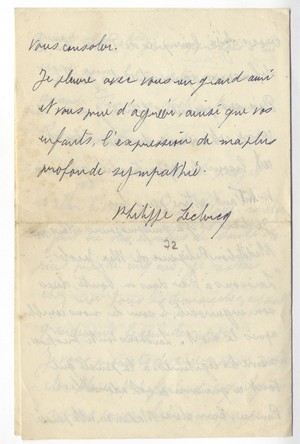 vous consoler.
Je pleure avec vous un grand ami
et vous prie d'agréer, ainsi que vos
enfants, l'expression de ma plus
profonde sympathie.
Philippe Leclercq
72